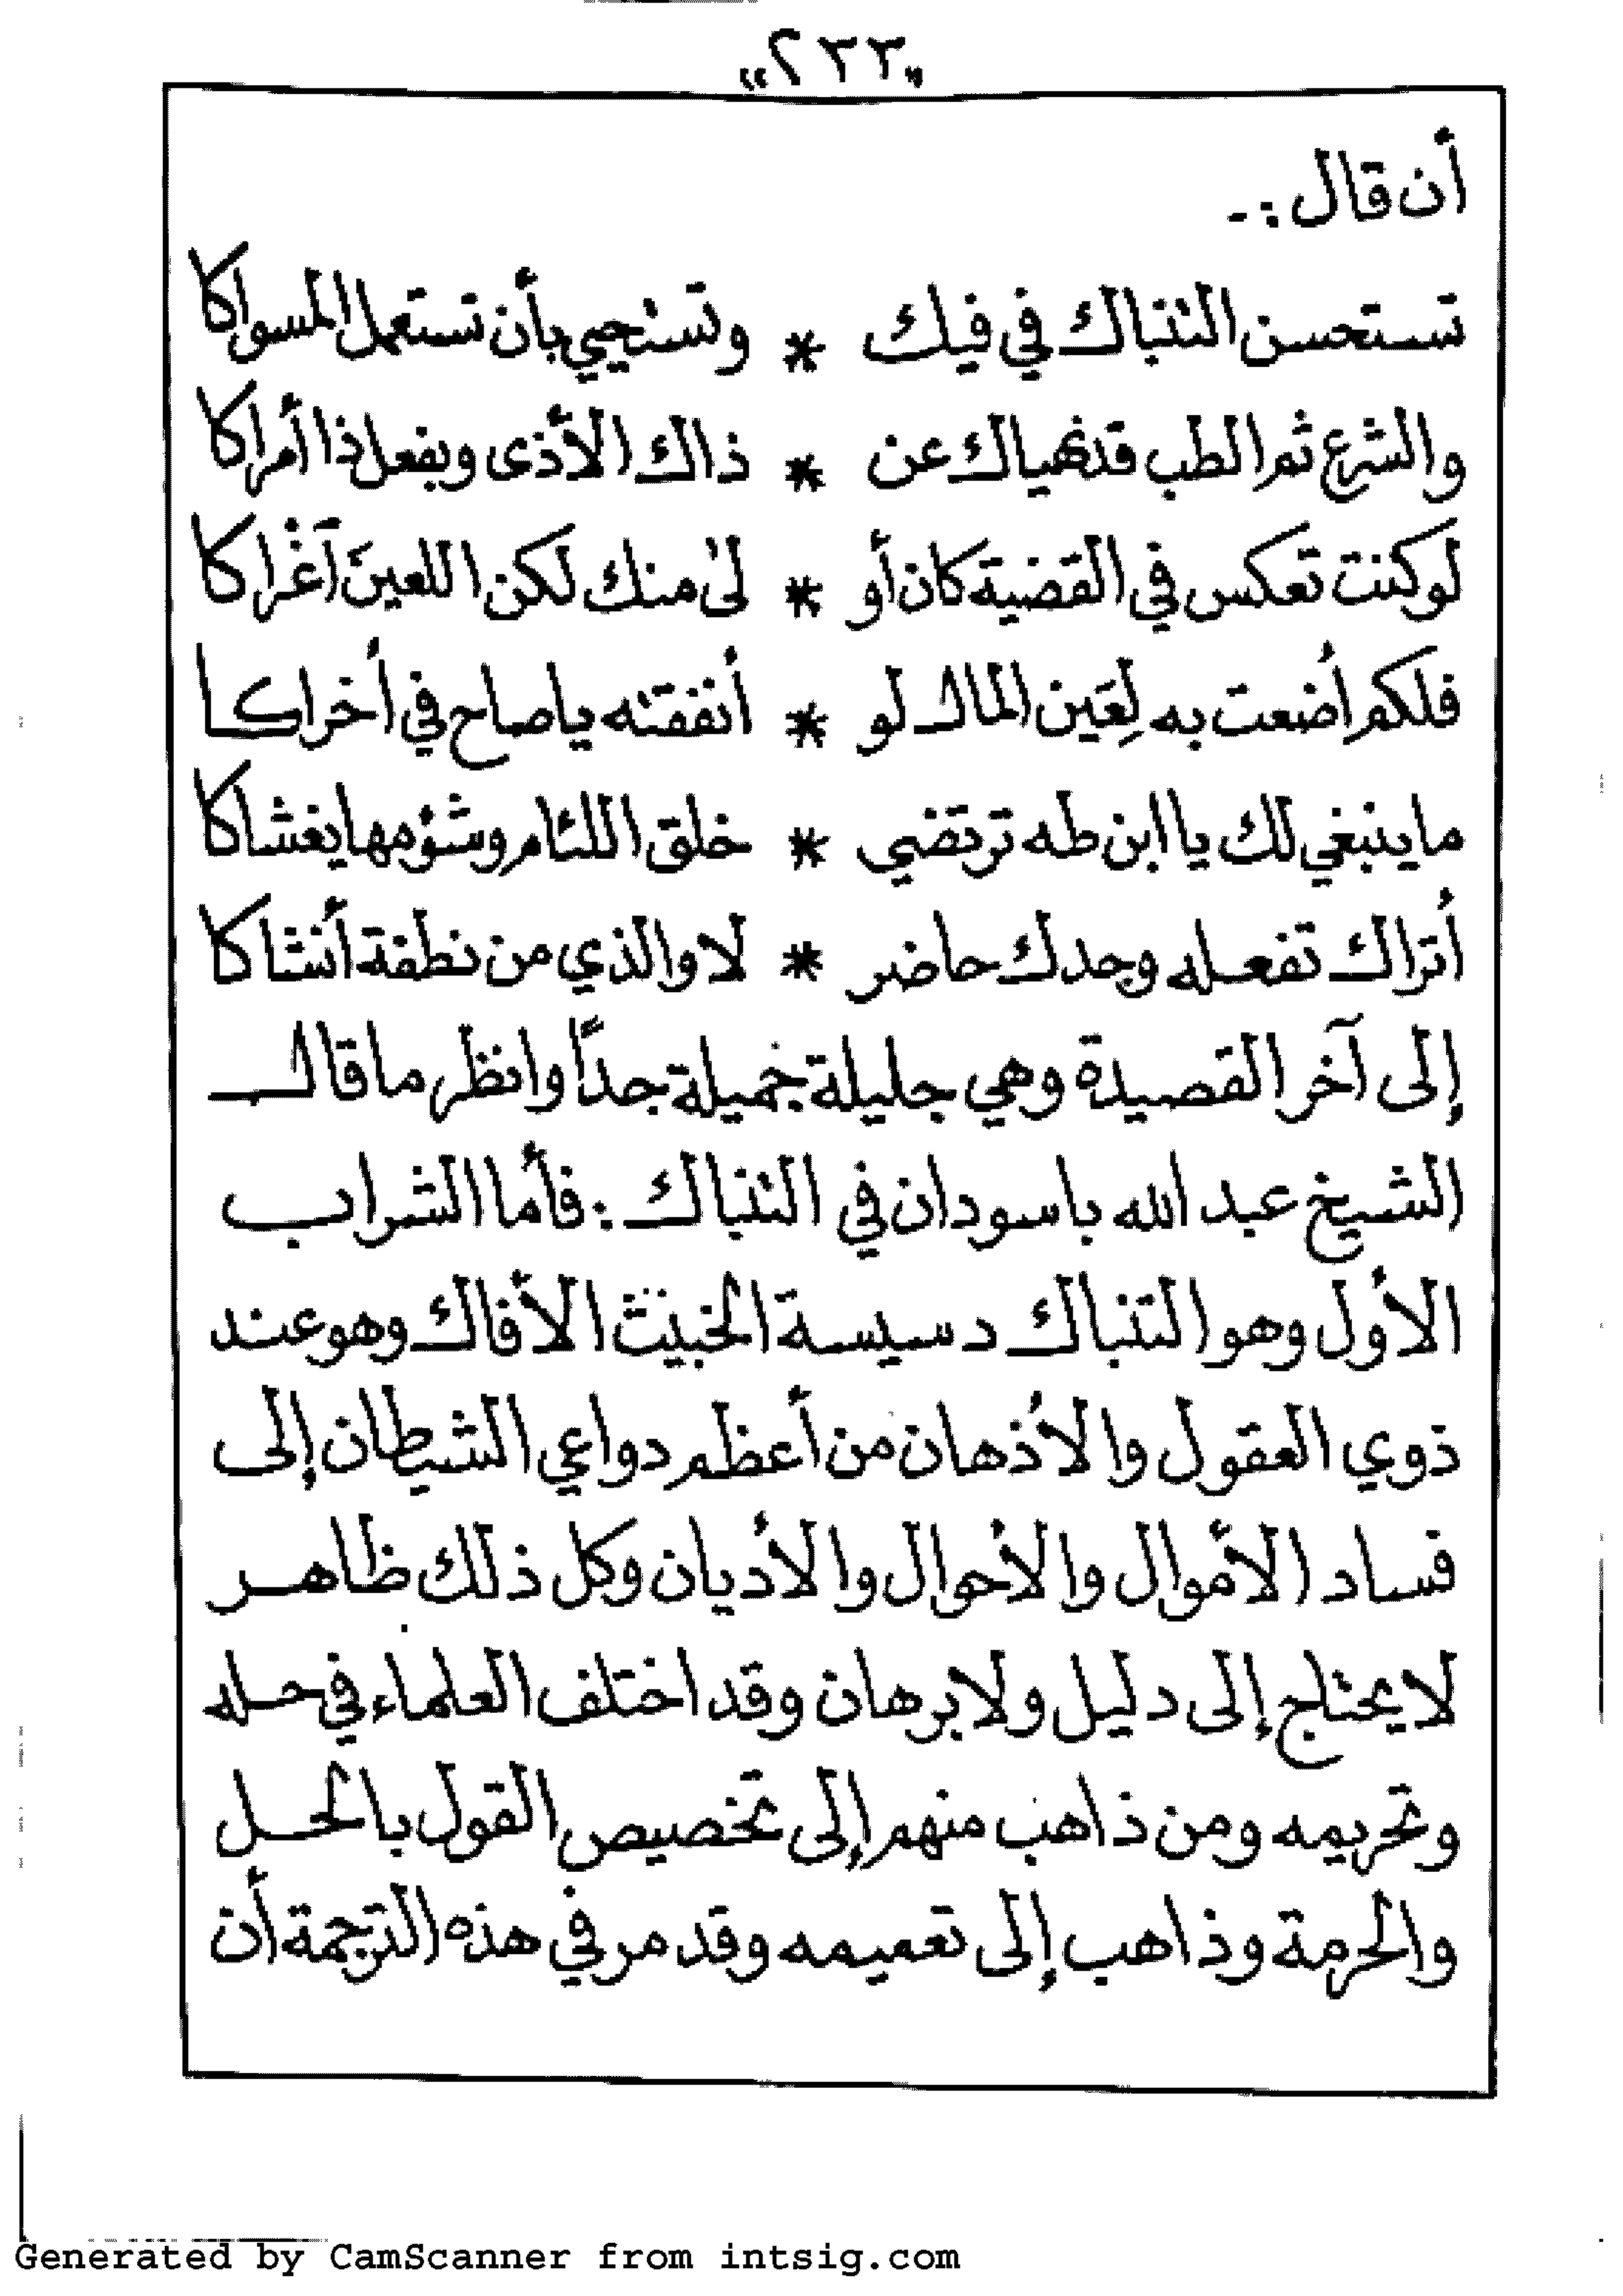 "٢٣٣"
أن قال :-
تستحسن التنباك في فيك * وتستحيي بأن تستعمل المسواكا
والشرع ثم الطب قد نهياك عن * ذاك الأذى وبفعل ذا أمراكا
لو كنت تعكس في القضية كان أو * لى منك لكن اللعين آغراكا
فلكم أضعت به لِعَين المال لو * أنفقته يا صاح في أخراكا
ما ينبغي لك يا ابن طه ترتضي * خلق اللئام وشؤمها يغشاكا
أتراك تفعله وجدك حاضر * لا والذي من نطفة أنشاكا
إلى آخر القصيدة وهي جليلة جميلة جداً وانظر ما قال
الشيخ عبد الله باسودان في التنباك : فأما الشراب
الأول وهو التنباك دسيسة الخبيث الأفاك وهو عند
ذوي العقول والأذهان من أعظم دواعي الشيطان إلى
فساد الأموال والأحوال والأديان وكل ذلك ظاهر
لا يحتاج إلى دليل ولا برهان وقد اختلف العلماء في حله
وتحريمه ومن ذاهب منهم إلى تخصيص القول بالحل
والحرمة وذاهب إلى تعميمه وقد مر في هذه الترجمة أن
Generated by CamScanner from intsig.com